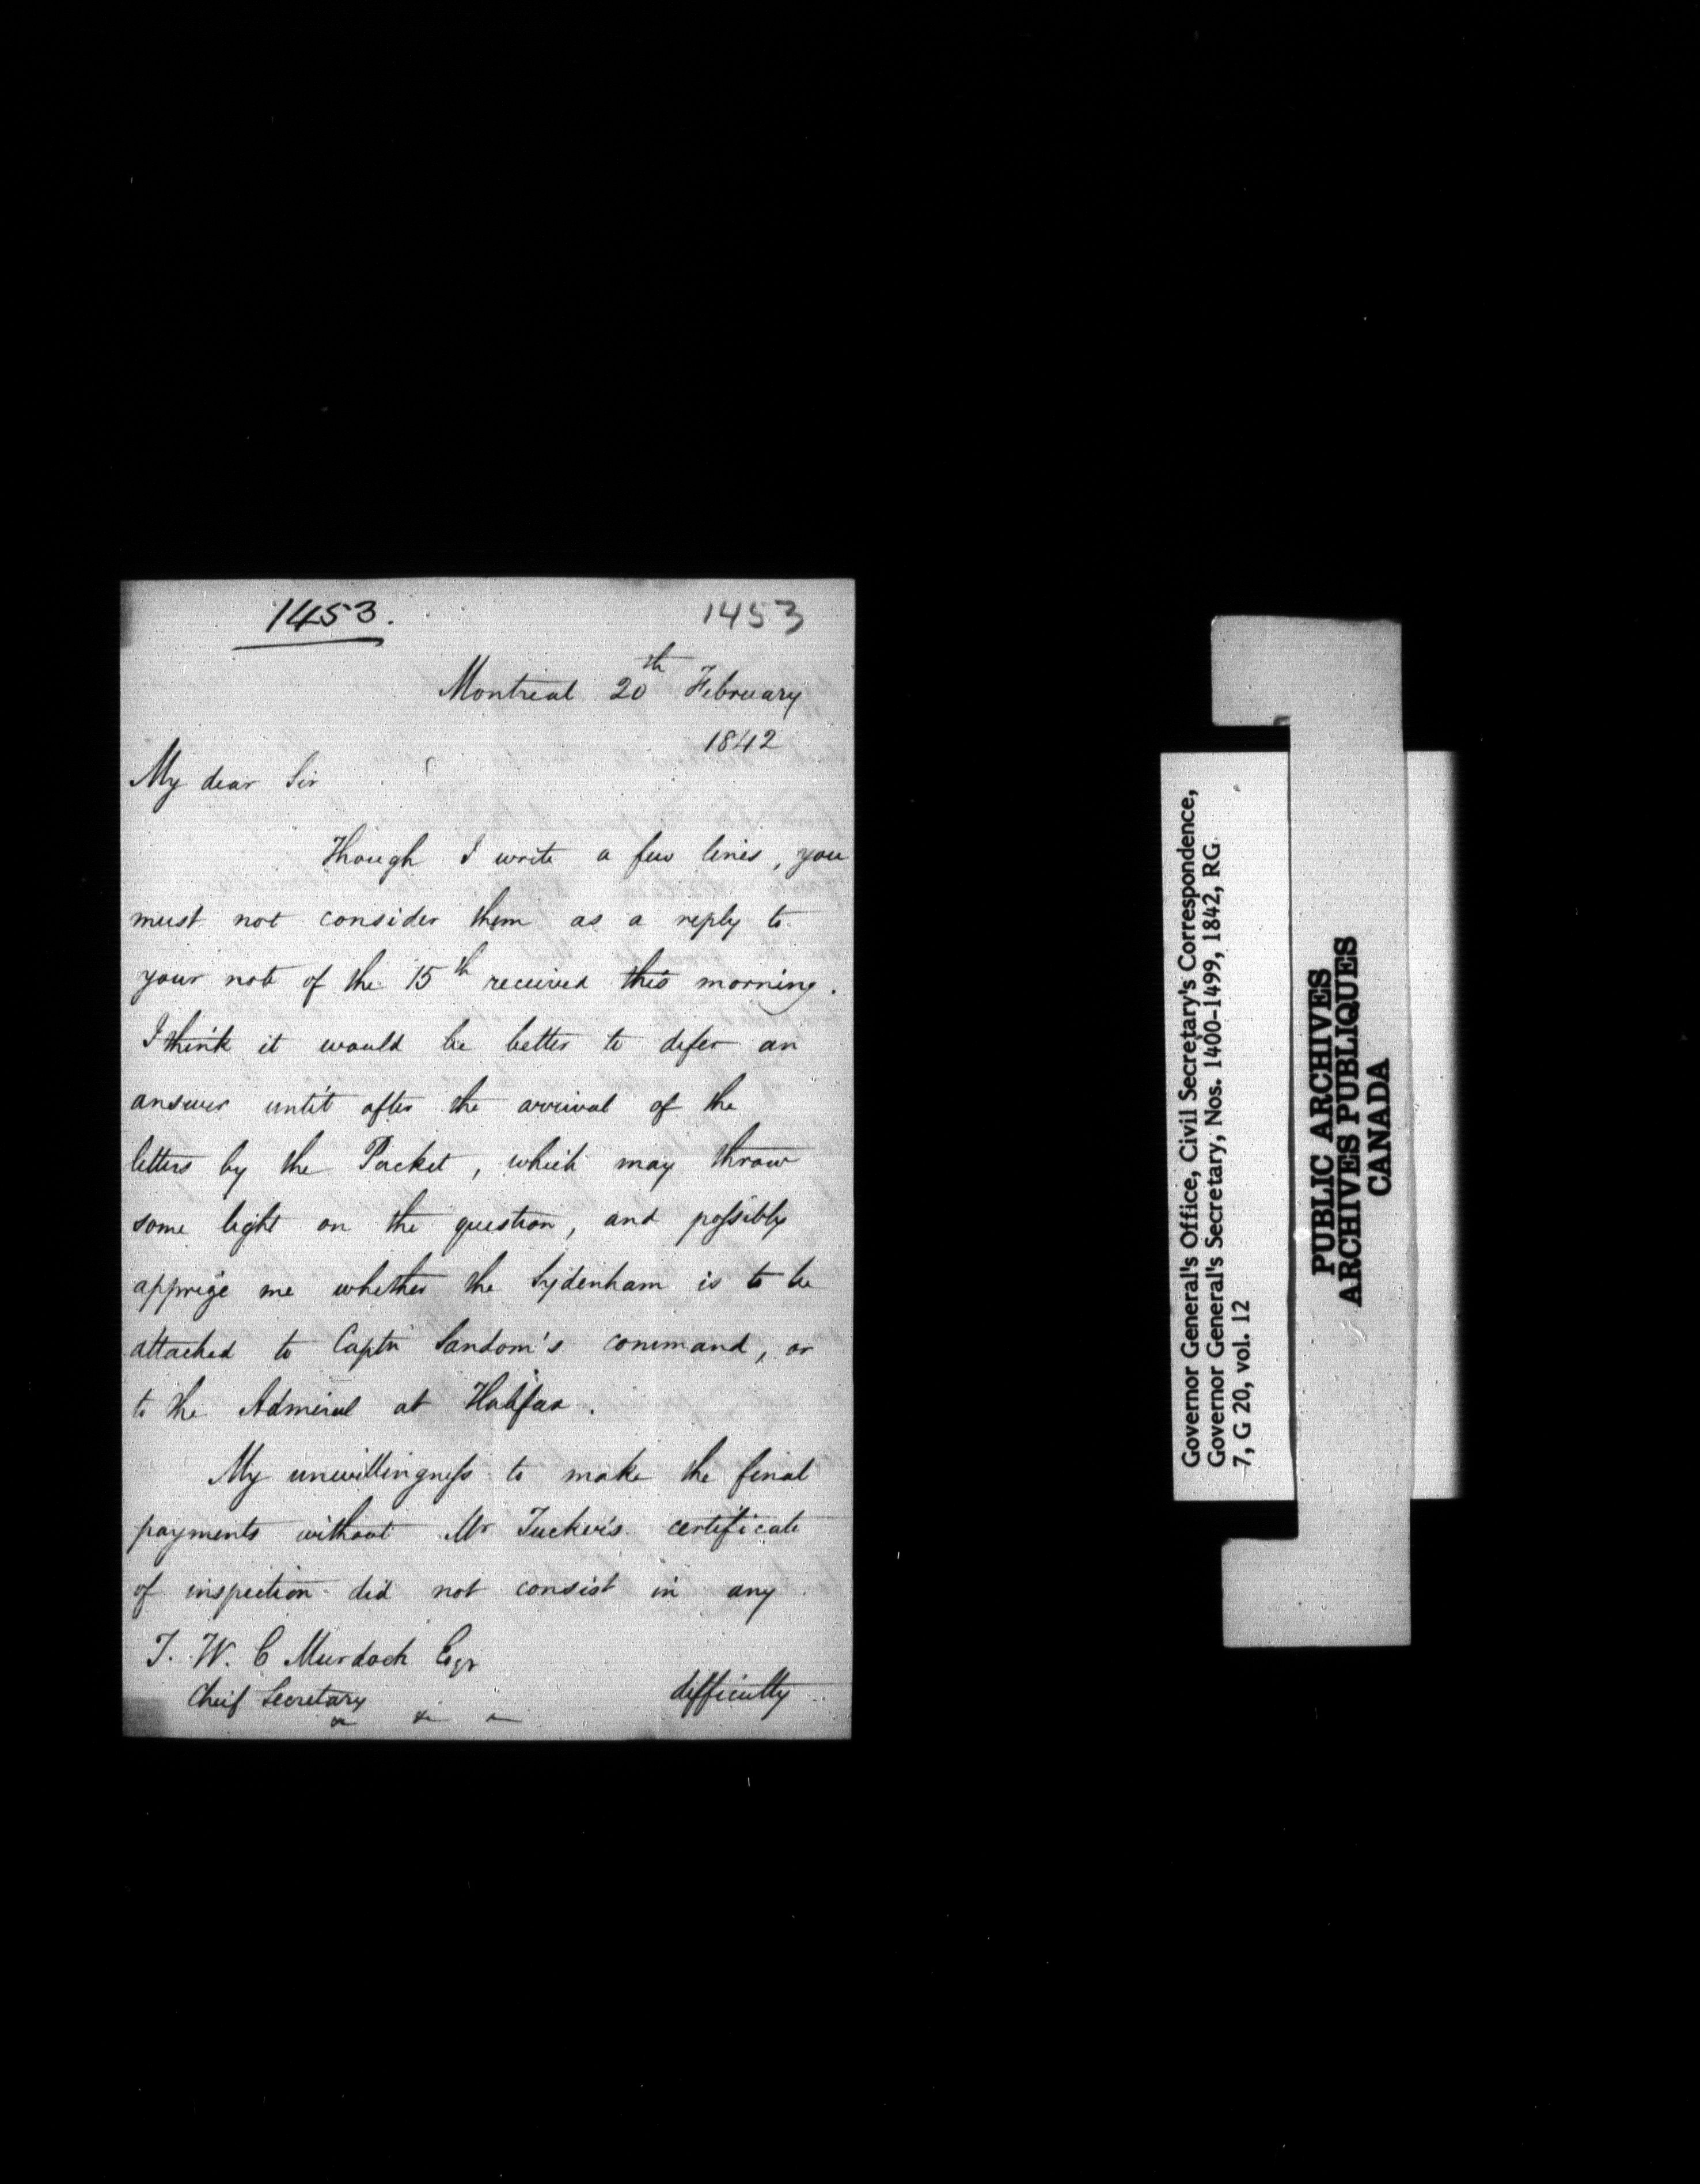 1453.
1453
Montreal 20th February
1842
My dear Sir
Though I write a few lines, you
must not consider them as a reply to
your note of the 15th received this morning.
I think it would be better to defer an
answer until after the arrival of the
letters by the Packet, which may throw
some light on the question, and possibly
apprize me whether the Sydenham is to be
attached to Captn Sandom's command, or
to the Admiral at Halifax.
My unwillingness to make the final
payments without Mr Tucker's certificate
of inspection did not consist in any
T. W. C Murdoch Esqr
Cheif Secretary
difficulty
Governor General's Office, Civil Secretary's Correspondence,
Governor General's Secretary, Nos. 1400-1499, 1842, RG
7, G 20, vol. 12
PUBLIC ARCHIVES
ARCHIVES PUBLIQUES
CANADA